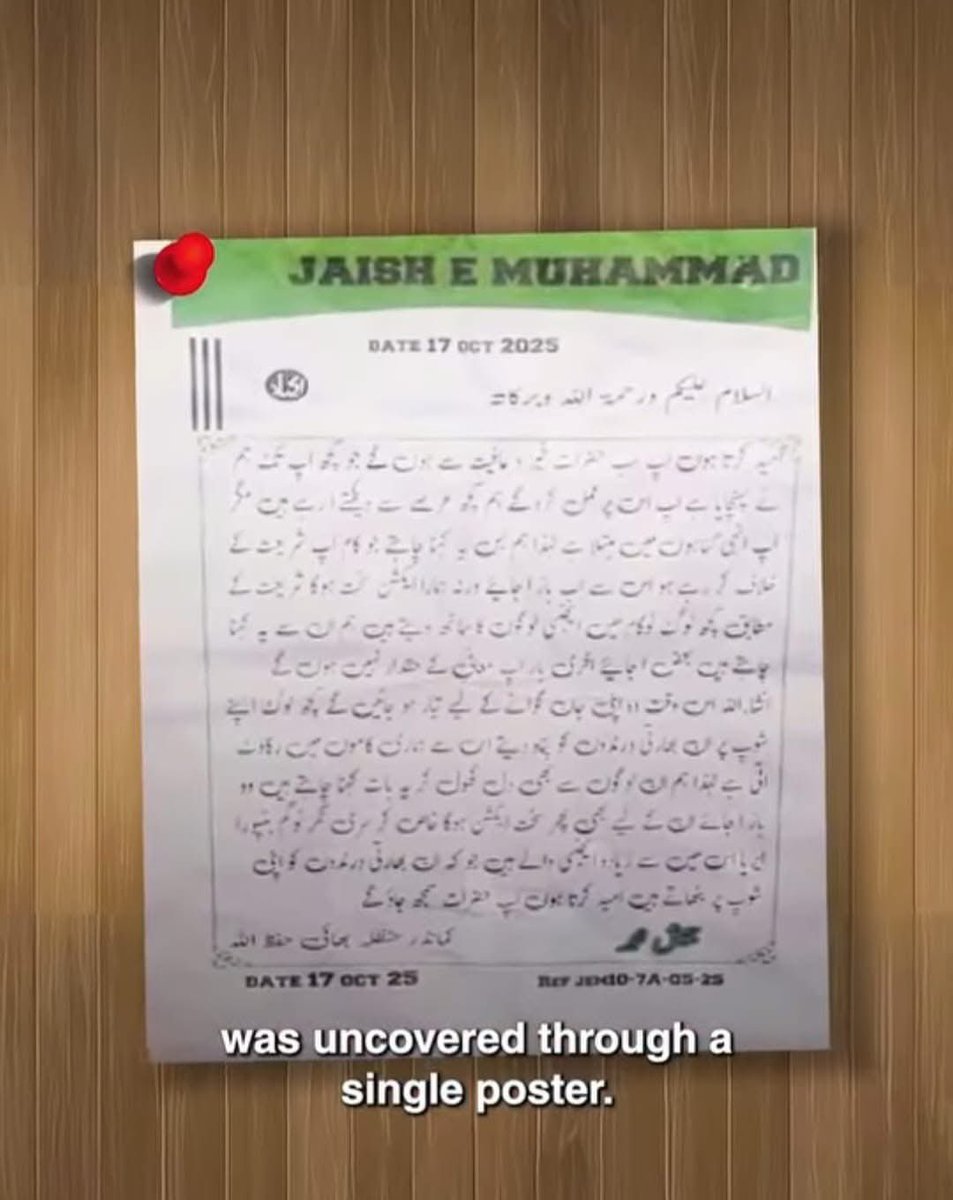 JAISH E MUHAMMAD
DATE 17 OCT 2025
السلام علیکم ورحمۃ اللہ وبرکاتہ
کرتا ہوں آپ سب حضرات خیر و عافیت سے ہوں گے جو کچھ آپ تک ہم
نے پہنچایا ہے آپ اس پر عمل کروگے ہم کچھ عرصے سے دیکھتے ارہے ہیں مگر
آپ انہی گناہوں میں مبتلا ہے لہذا ہم بس یہ کہنا چاہتے جو کام آپ شریعت کے
خلاف کر رہے ہو اس سے اب باز اجائے ورنہ ہمارا ایکشن سخت ہوگا شریعت کے
مطابق کچھ لوگ میں ایجنسی لوگوں کا ساتھ دیتے ہیں ہم ان سے یہ کہنا
چاہتے ہیں اجائے اخری بار آپ معافی کے حقدار نہیں ہوں گے
انشاءاللہ اس وقت وہ اپنی جان گوانے کے لیے تیار ہو جائیں گے کچھ لوگ اپنے
شوپ پر ان بھارتی درندوں کو پناہ دیتے اس سے ہماری کاموں میں رکاوٹ
اتی ہے لہذا ہم ان لوگوں سے بھی دل کھول کر یہ بات کہنا چاہتے ہیں وہ
باز اجائے ان کے لیے بھی پھر سخت ایکشن ہوگا خاص کر سری نگر
اس میں سے زیادہ ایجنسی والے ہیں جو کہ ان بھارتی درندوں کو اپنی
شوپ پر بٹھاتے ہیں امید کرتا ہوں آپ حضرات سمجھ جاؤگے
کمانڈر بھائی حفظ اللہ
DATE 17 OCT 25
REF JEM10-7A-05-25
was uncovered through a
single poster.